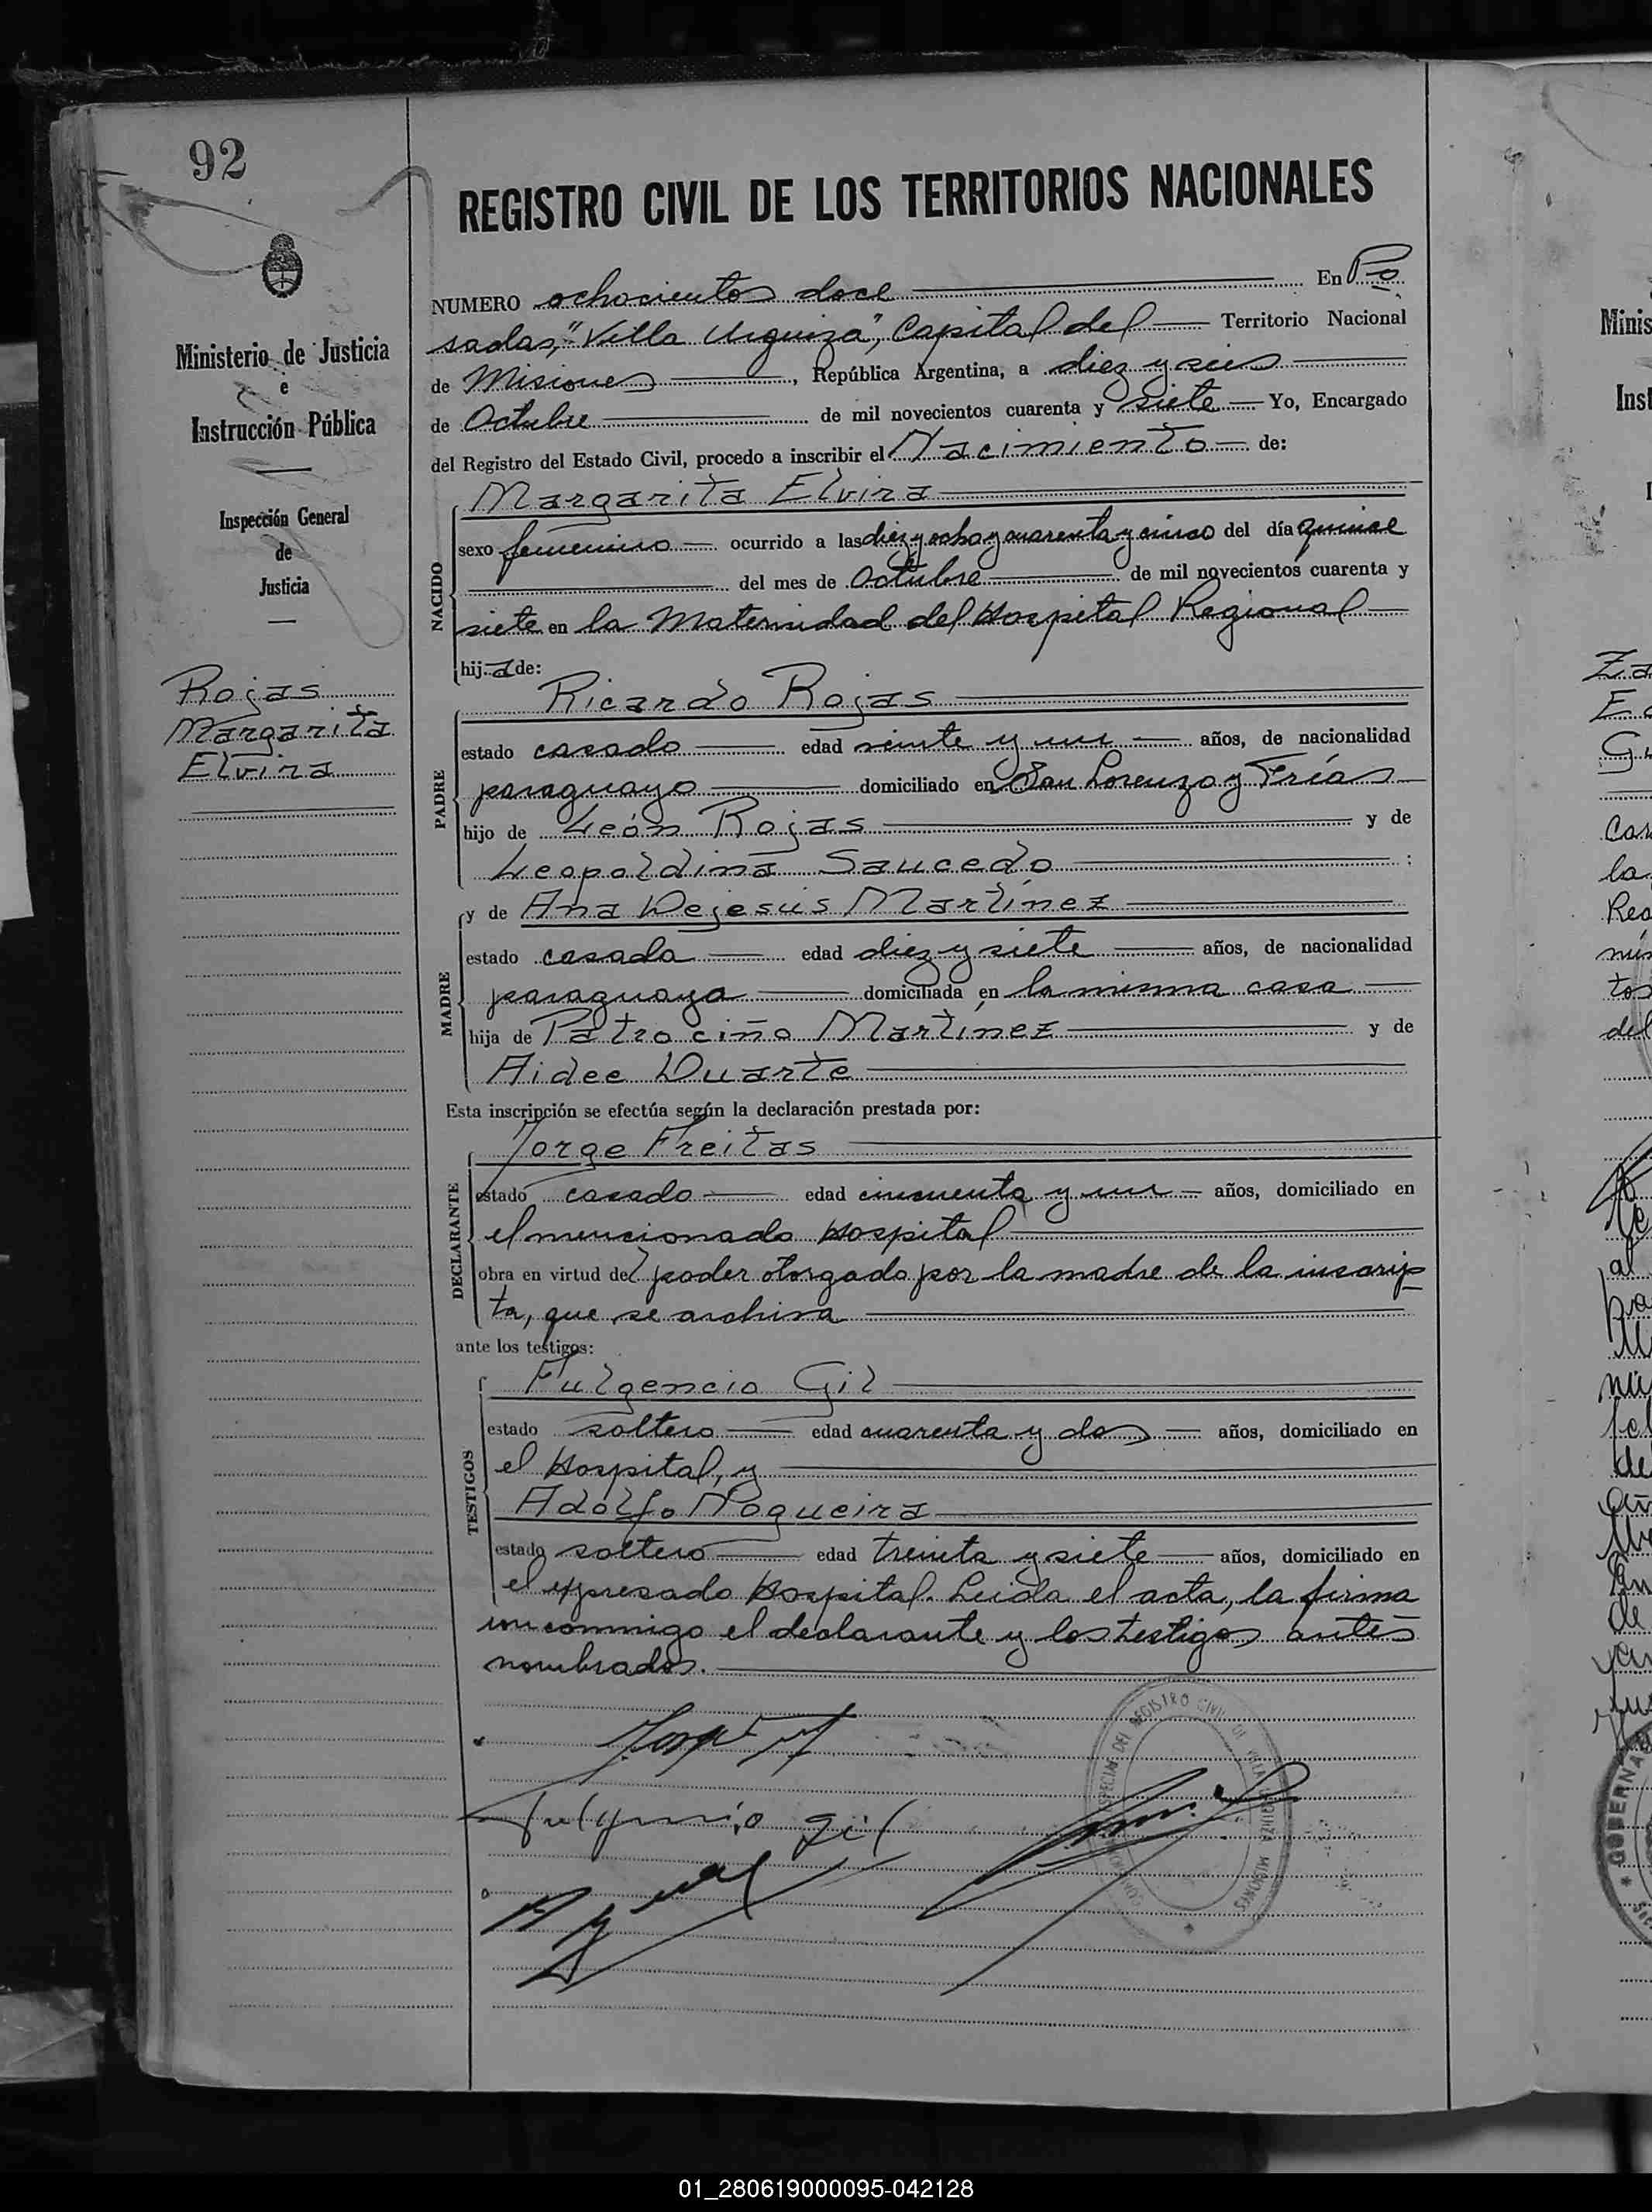 92
Ministerio de Justicia
e
Instrucción Pública
Inspección General
de
Justicia
Rojas
Margarita
Elvira
REGISTRO CIVIL DE LOS TERRITORIOS NACIONALES
NUMERO ochocientos doce En Po
sadas, "Villa Urquiza", Capital del Territorio Nacional
de Misiones, República Argentina, a diez y seis
de Octubre de mil novecientos cuarenta y siete Yo, Encargado
del Registro del Estado Civil, procedo a inscribir el Nacimiento de:
NACIDO
Margarita Elvira
sexo femenino ocurrido a las diez y ocho y cuarenta y cinco del día quince
del mes de Octubre de mil novecientos cuarenta y
siete en la Maternidad del Hospital Regional
hija de:
PADRE
Ricardo Rojas
estado casado edad veinte y un años, de nacionalidad
paraguayo domiciliado en San Lorenzo y Frías
hijo de León Rojas y de
Leopoldina Saucedo :
MADRE
y de Ana Dejesús Martínez
estado casada edad diez y siete años, de nacionalidad
paraguaya domiciliada en la misma casa
hija de Patrociño Martínez y de
Aidee Duarte
Esta inscripción se efectúa según la declaración prestada por:
DECLARANTE
Jorge Freitas
estado casado edad cincuenta y un años, domiciliado en
el mencionado Hospital
obra en virtud del poder otorgado por la madre de la inscrip
ta, que se archiva
ante los testigos:
TESTIGOS
Fulgencio Gil
estado soltero edad cuarenta y dos años, domiciliado en
el Hospital, y
Adolfo Nogueira
estado soltero edad treinta y siete años, domiciliado en
el expresado Hospital. Leida el acta, la firma
ron conmigo el declarante y los testigos antes
nombrados.
Fulgencio Gil
DEL REGISTRO CIVIL DE VILLA URQUIZA MISIONES
Minis
Inst
Za
Car
la
Rea
del
GOBERNA
01_280619000095-042128